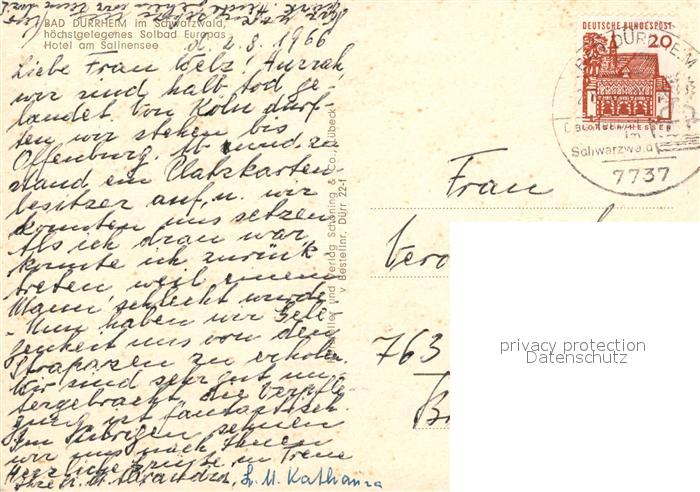 BAD DÜRRHEIM im Schwarzwald,
höchstgelegenes Solbad Europas
Hotel am Salinensee
d. 4. 8. 1966
Liebe Frau Welz! Hurrah,
wir sind halb tod ge
landet. Von Köln durf-
ten wir stehen bis
Offenburg. Ab und zu
stand ein Platzkarten-
besitzer auf, u. wir
konnten uns setzen.
Als ich dran war,
konnte ich zurück
treten, weil einem
Mann schlecht wurde
- Nun haben wir Gele
genheit uns von den
Strapazen zu erholen.
Wir sind sehr gut un-
tergebracht, die Verpfle
gung ist fantastisch.
Im Übrigen sehnen
wir uns nach Ihnen
Herzliche Grüße in Treue
Ihre
Sr. M. Katharina
Hersteller und Verlag Schöning & Co., Lübeck
Bestellnr. Dürr 22-f
DEUTSCHE BUNDESPOST
20
LORSCH/HESSEN
BAD DÜRRHEIM
im
Schwarzwald
7737
Frau
763
privacy protection
Datenschutz